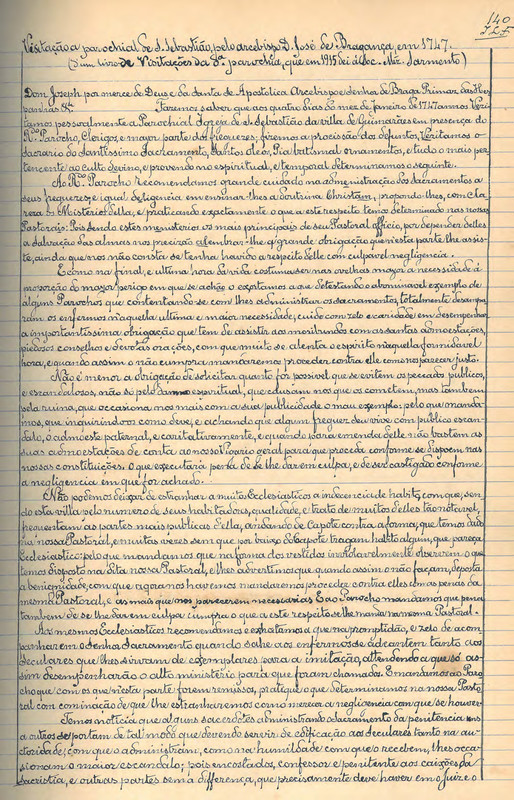 140
Visitação a parochial de S. Sebastião, pelo arcebispo D. José de Bragança, em 1747.
(Num livro de Visitação da dª parochia, que em 1915 dei á Soc. Mtz. Sarmento)
Dom Joseph por merce de Deus e da Santa Sé Apostolica Arcebispo e Senhor de Braga Primaz das Hes-
panhas &ª
Fazemos saber que aos quatro dias do mez de Janeiro de 1747 annos Vezi-
tamos pessoalmente a Parochial Igreja de S. Sebastião da villa de Guimarães em presença do
Rdo Parocho, Clerigos, e mayor parte dos freguezes: fizemos a procissão dos defuntos, Vezitamos o
Sacrario do Santissimo Sacramento, Santos Oleos, Pia batismal ornamentos, e tudo o mais per-
tencente ao culto divino, e provendo no espiritual, e temporal determinamos o seguinte.
Ao Rdo Parocho recomendamos grande cuidado na administração dos Sacramentos a
seus freguezes; e igual deligencia em ensinar-lhes a doutrina Christam, propondo-lhes, com cla-
reza os Misterios della, e praticando exactamente o que a este respeito temos determinado nas nossas
Pastorais: Pois sendo estes menisterios os mais principais de seu Pastoral officio, por depender delles
a salvação das almas nos precizão a lembrar-lhe a grande obrigação que nesta parte lhe assis-
te, ainda que nos não consta se tenha havido a respeito delle com culpavel negligencia.
E como na final, e ultima hora da vida costuma ser nas ovelhas mayor a necessidade á
proporção do mayor perigo em que se achão o exortamos a que detestando o abominavel exemplo de
alguns Parochos que contentando-se com lhes administrar os sacramentos, totalmente desampa-
ram os enfermos n'aquella ultima e maior necessidade, cuide com zelo e caridade em desempenhar
a importantissima obrigação que tem de assistir aos moribundos com as santas admoestações,
piedosos conselhos e devotas orações, com que muito se alenta o espirito n'aquella formidavel
hora, e quando assim o não cumpra mandaremos proceder contra elle como nos parecer justo.
Não é menor a obrigação de solicitar quanto for possivel que se evitem os pecados publicos,
e escandalosos, não só pelo damno espiritual, que cauzam nos que os cometem, mas tambem
pela ruina, que occasiona nos mais com a sua publicidade o mau exemplo: pelo que manda-
mos, que inquirindo-os como deve, e achando que algum freguez seu vive com publico escan-
dalo, o admoeste paternal, e caritativamente, e quando para emenda delle não bastem as
suas admoestações de conta ao nosso Vigario geral para que proceda conforme se dispoem nas
nossas constituições. O que executará pena de se lhe dar em culpa, e de ser castigado conforme
a negligencia em que for achado.
Não podemos deixar de estranhar a muitos Ecclesiasticos a indecencia de habito, com que, sen-
do esta villa pelo numero de seus habitadores, qualidade, e trato de muitos d'elles tão notavel,
frequentam as partes mais publicas d'ella, andando de Capote contra a forma, que temos dado
na nossa Pastoral, e muitas vezes sem que por baixo do capote tragam habito algum, que pareça
Ecclesiastico: pelo que mandamos que na forma dos vestidos inviolavelmente observem o que
temos disposto na dita nossa Pastoral, e lhes advertimos que quando assim o não façam, deposta
a benignidade, com que os tratamos havemos mandaremos proceder contra elles com as penas da
mesma Pastoral, e as mais que nos parecerem necessarias. E ao Parocho mandamos que pena
tambem de se lhe dar em culpa cumpra o que a este respeito se lhe manda na mesma Pastoral.
Aos mesmos Ecclesiasticos recomendamos e exhortamos a que na promptidão, e zelo de acom-
panharem o Senhor Sacramentado quando sahe aos enfermos se adeantem tanto aos
seculares que lhes sirvam de exemplares para a imitação, attendendo a que só as-
sim desempenharão o alto ministerio para que foram chamados. E mandamos ao Paro-
cho que com os que n'esta parte forem remissos, pratique o que determinamos na nossa Pasto-
ral com cominação de que lhe estranharemos como merecer a negligencia com que se houver.
Temos noticia que alguns sacerdotes administrando o sacramento da penitencia uns
a outros se portam de tal modo que devendo servir de edificação aos seculares tanto na au-
ctoridade, com que o administram, como na humildade com que o recebem, lhes occa-
sionam o maior escandalo; pois encostados, confessor e penitente aos caixões da
sacristia, e outras partes sem a differença, que precisamente deve haver em o juiz e o